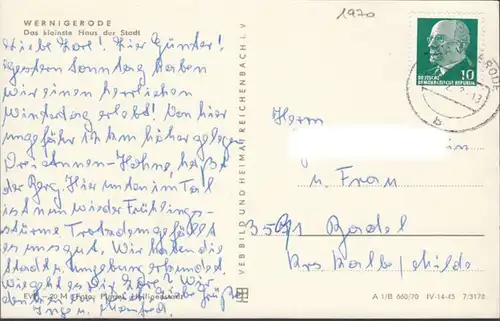 WERNIGERODE
Das kleinste Haus der Stadt
1970
Liebe Lore! Lieber Günter!
gestern Sonntag haben
wir einen herrlichen
Wintertag erlebt! Von hier
ungefähr 15 km höher gelegen
Drei-Annen-Hohne, heißt
der Berg. Hier unten im Tal
ist nun wieder Frühlings-
stürme. Trotzdem gefällt
es uns gut. Wir haben die
Stadt u. Umgebung erkundet.
Wie geht es Dir, Lore? Wir
denken an Grüße
Inge u. Manfred.
EVP -,20 M (Foto: Heiligenstadt)
VEB BILD UND HEIMAT REICHENBACH I. V
DEUTSCHE
DEMOKRATISCHE REPUBLIK
10
ERODE
b
Herrn
in
u. Frau
3501 Badel
Krs. Kalbe/Milde
A 1/B 660/70 IV-14-45 7/3178